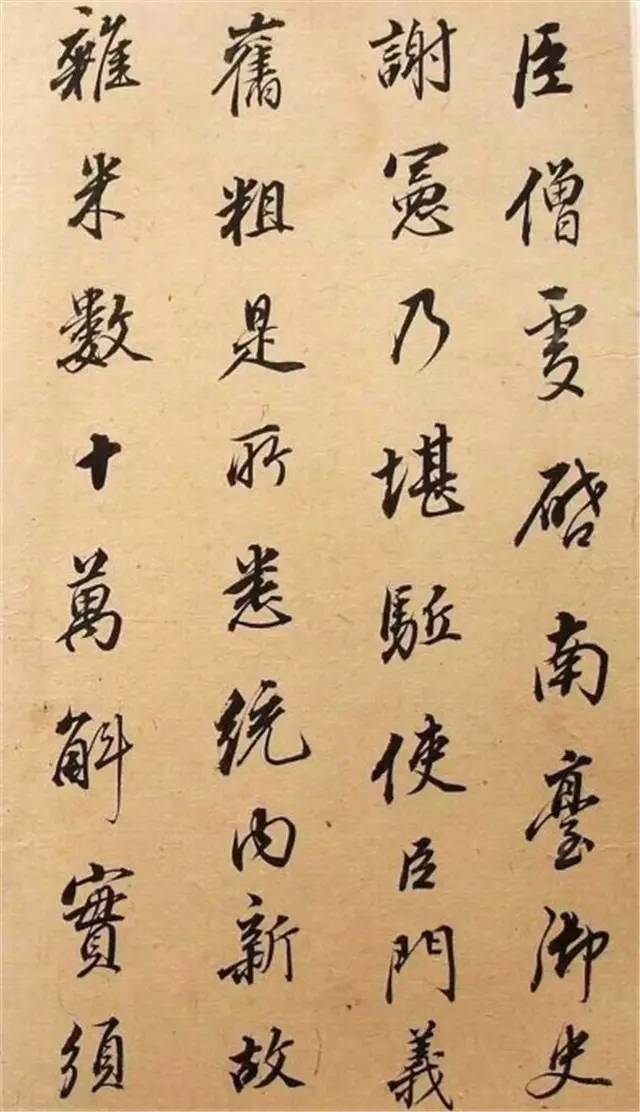 臣僧虔啓南臺御史
謝憲乃堪驅使臣門義
舊粗是所悉統內新故
雜米數十萬斛實須